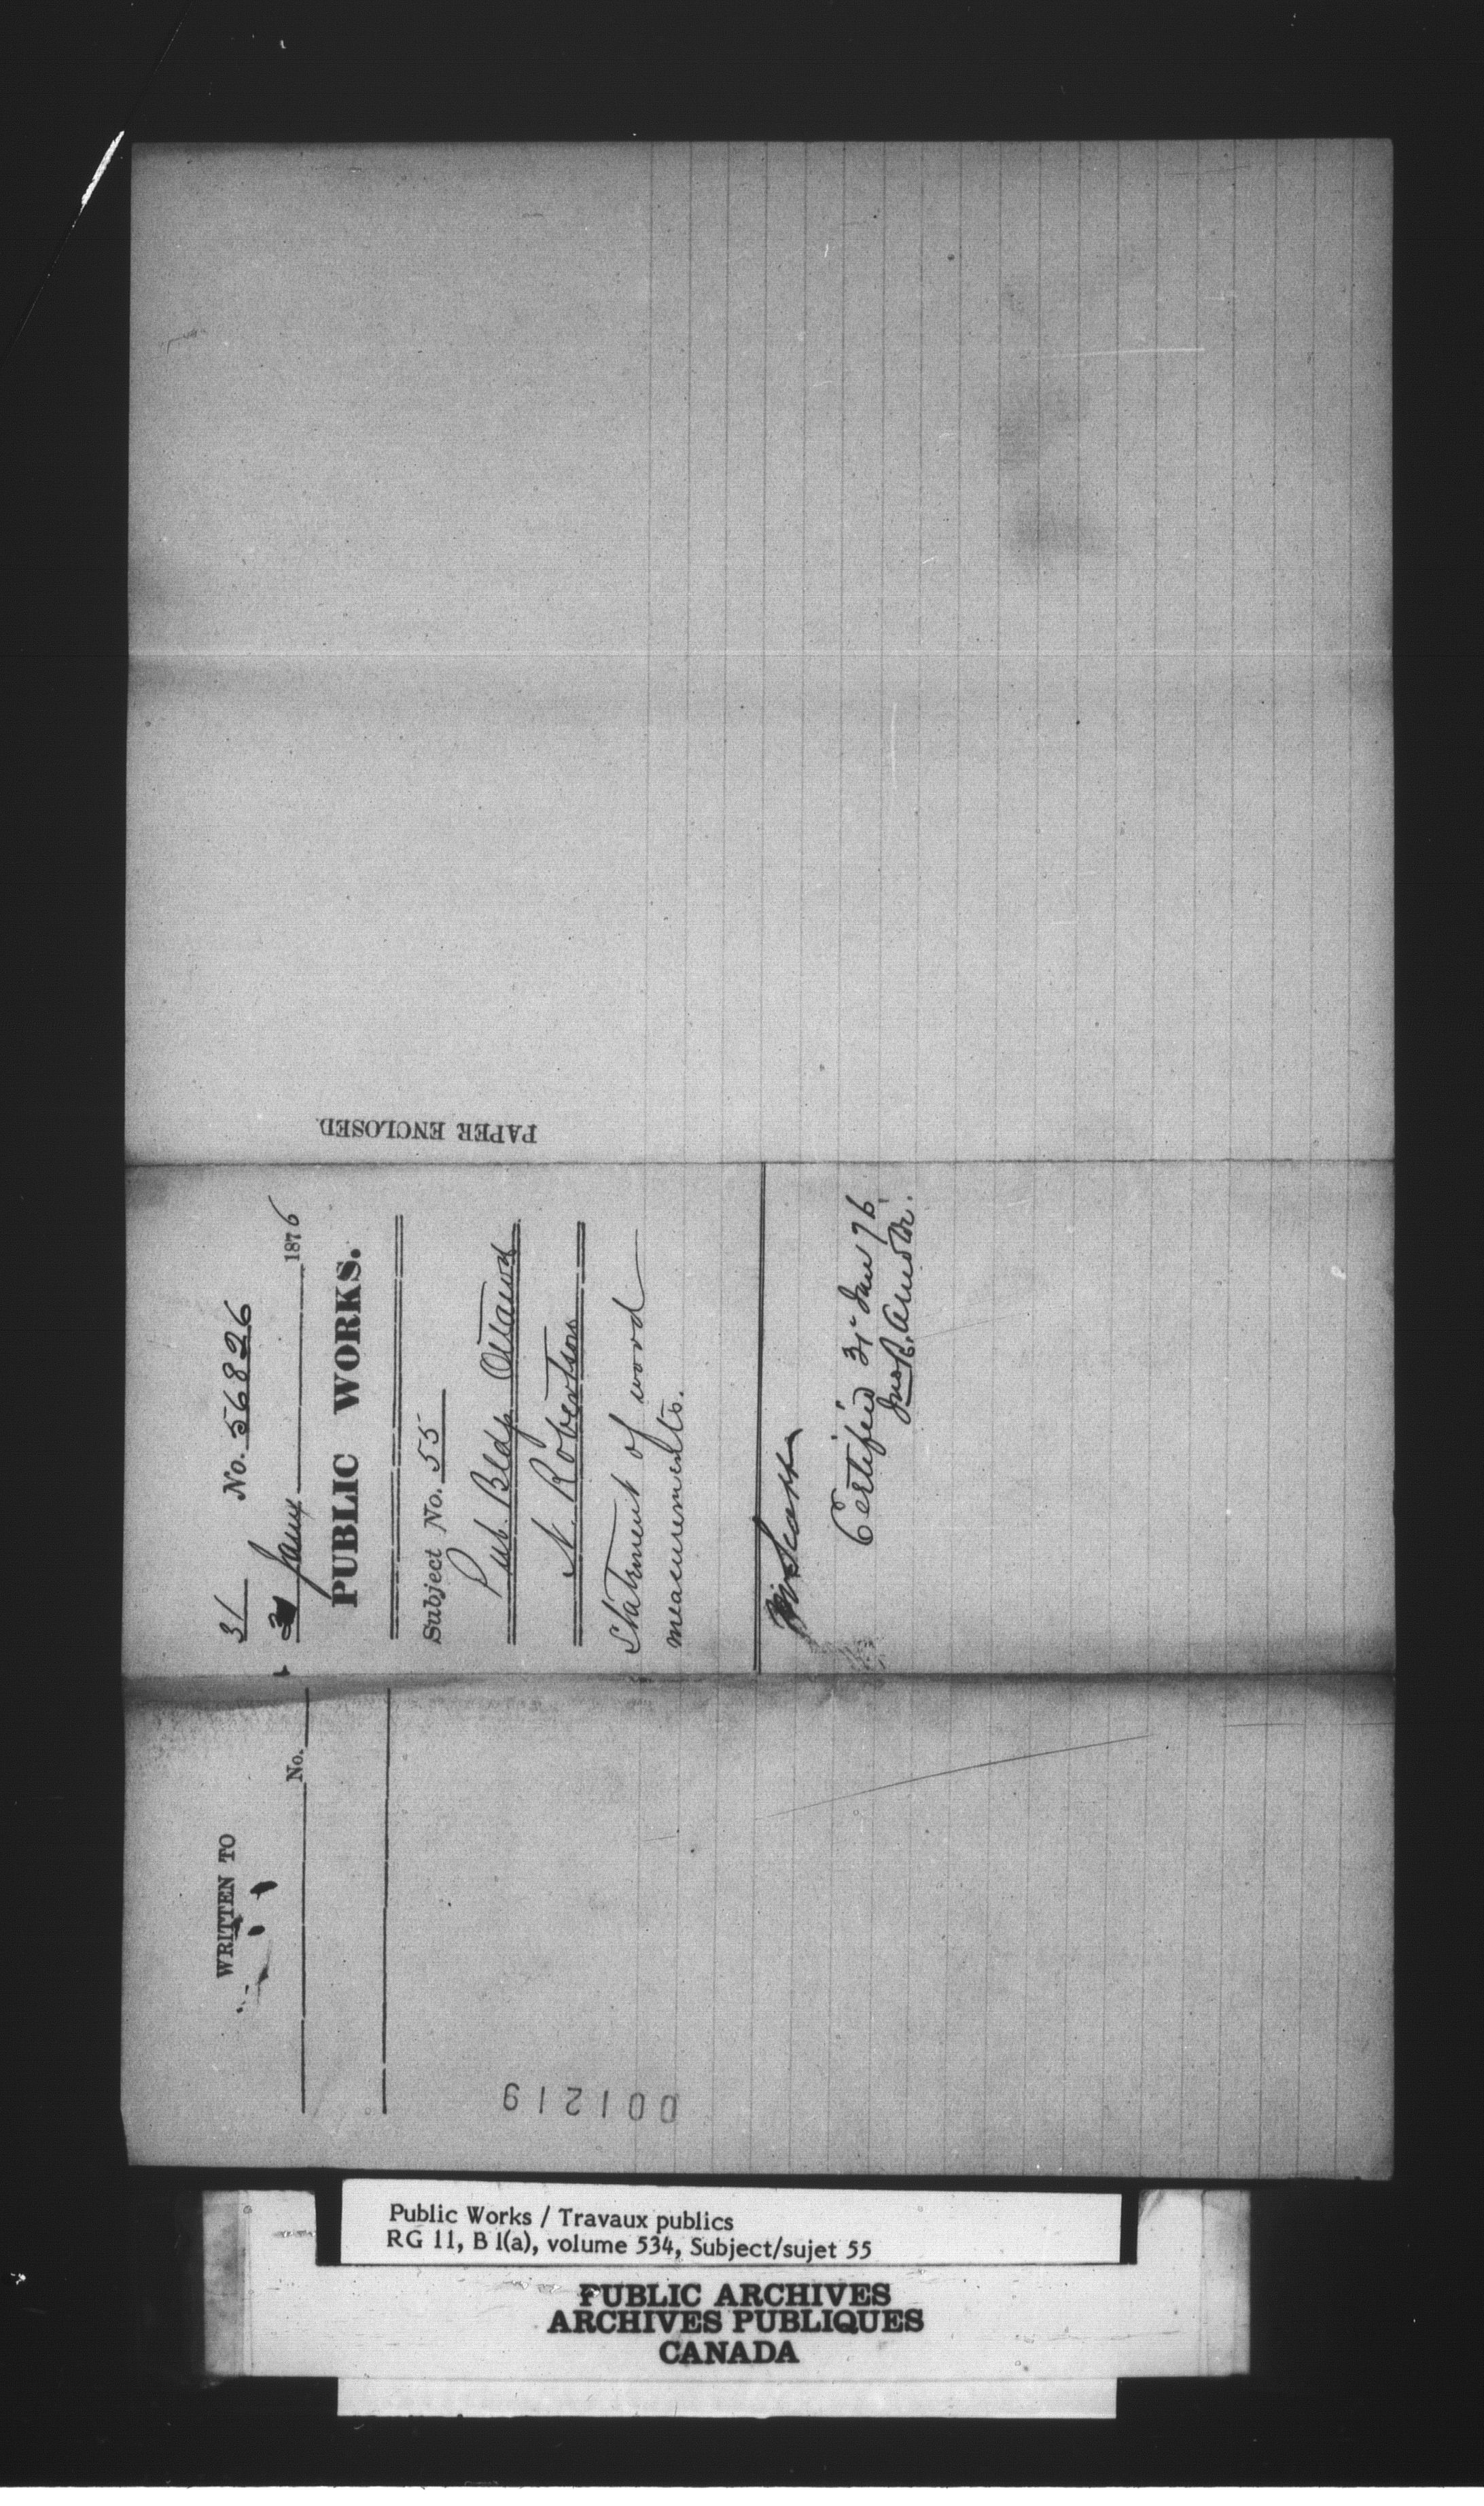 31 No. 56826
31 Jany 1876
PUBLIC WORKS.
Subject No. 55
Pub. Bldgs Ottawa
N. Robertson
Statement of wood
measurements.
Certified 31 Jan 76
PAPER ENCLOSED.
WRITTEN TO
No.
001219
Public Works / Travaux publics
RG 11, B 1(a), volume 534, Subject/sujet 55
PUBLIC ARCHIVES
ARCHIVES PUBLIQUES
CANADA